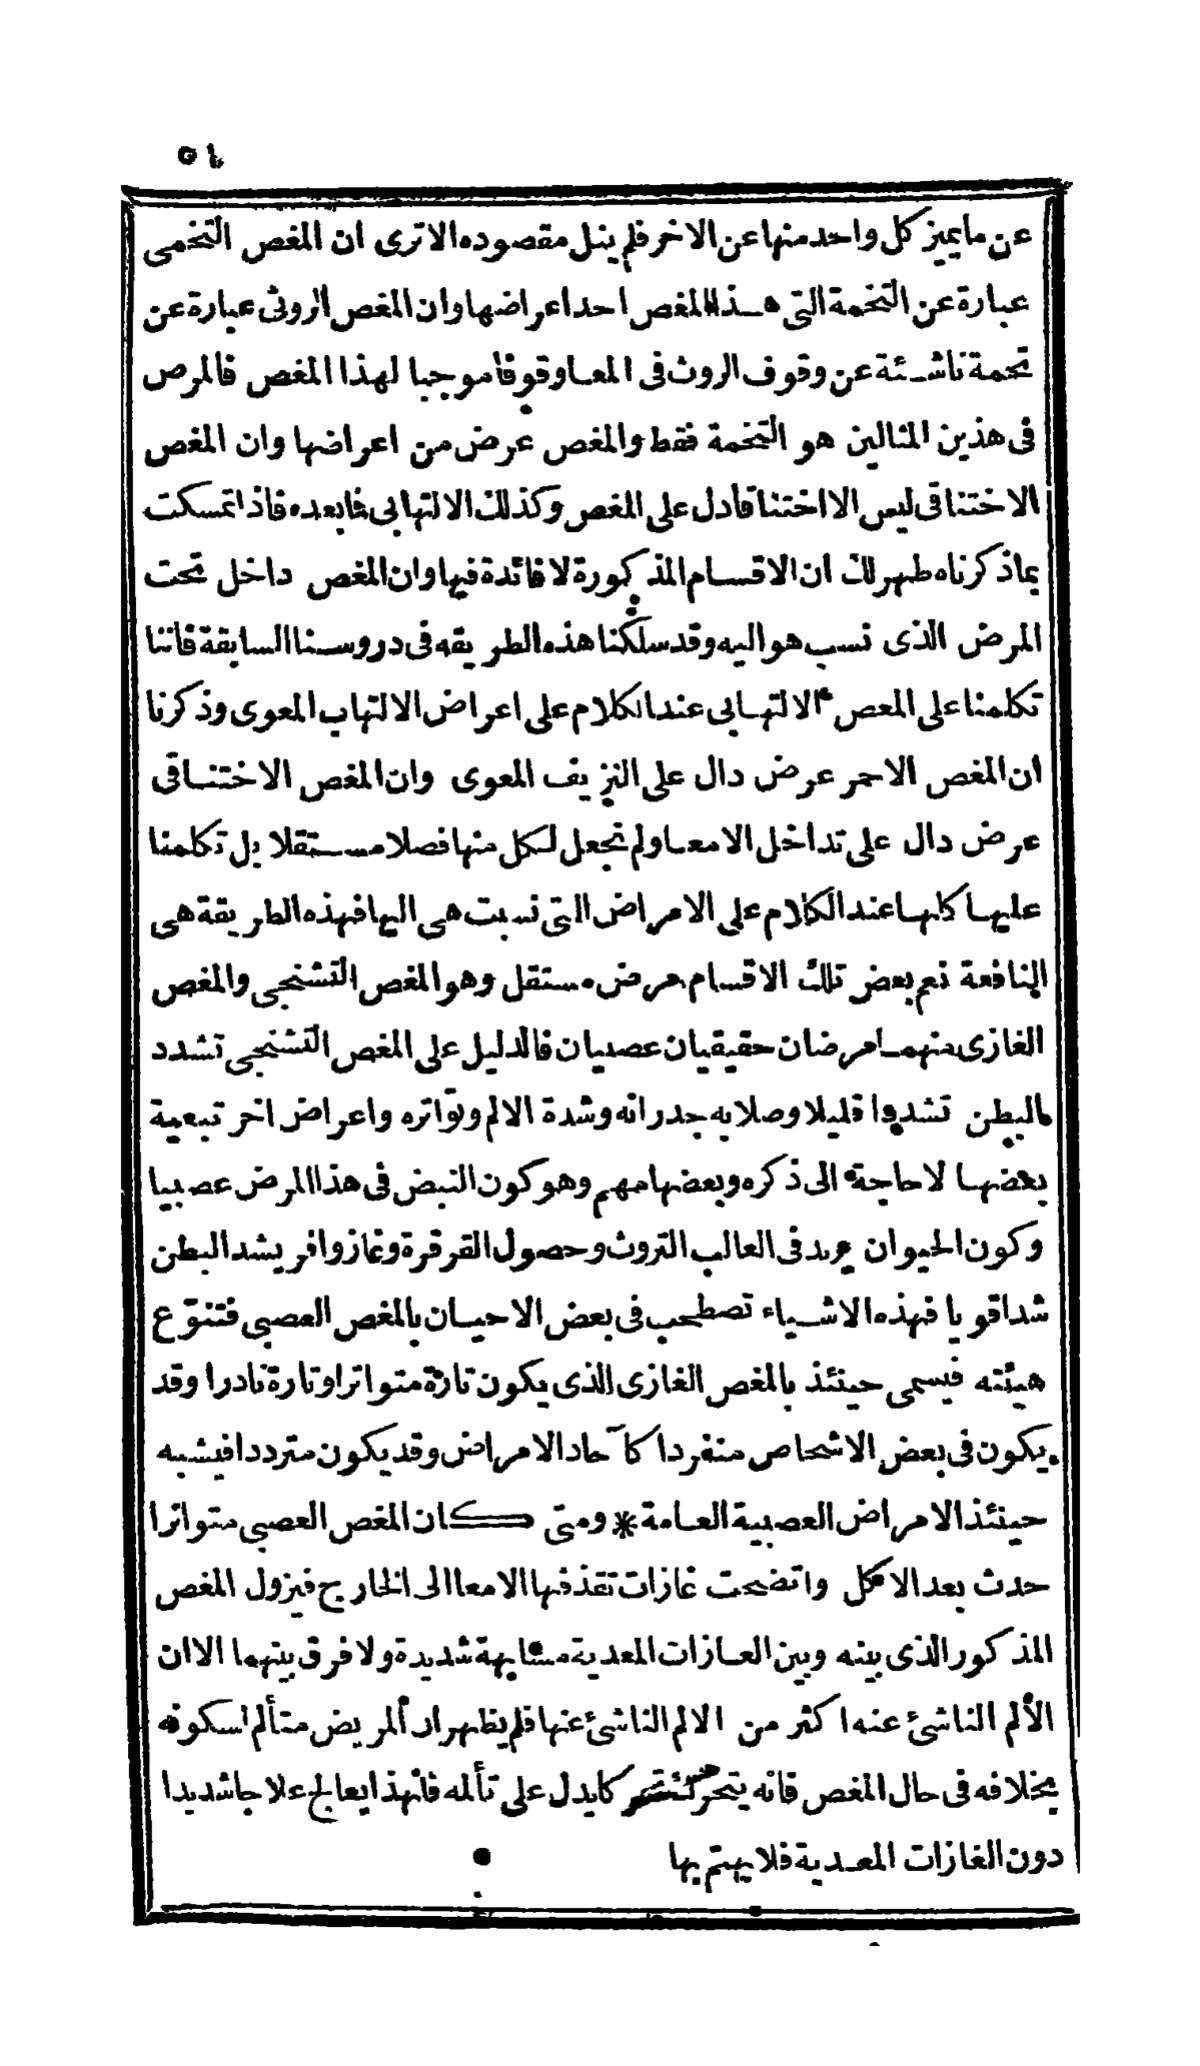 ٥٤
عن مايميز كل واحد منها عن الاخر فلم ينل مقصوده الا ترى ان المغص التخمى
عبارة عن التخمة التى هذا المغص احد اعراضها وان المغص الروثى عبارة عن
تخمة ناشئة عن وقوف الروث فى المعا وقوفا موجبا لهذا المغص فالمرض
فى هذين المثالين هو التخمة فقط والمغص عرض من اعراضها وان المغص
الاختناقى ليس الا اختناقا دل على المغص وكذلك الالتهابى فما بعده فاذا تمسكت
بما ذكرناه ظهر لك ان الاقسام المذكورة لا فائدة فيها وان المغص داخل تحت
المرض الذى نسب هو اليه وقد سلكنا هذه الطريقه فى دروسنا السابقة فاننا
تكلمنا على المعص الالتهابى عند الكلام على اعراض الالتهاب المعوى وذكرنا
ان المغص الاحمر عرض دال على النزيف المعوى وان المغص الاختناقى
عرض دال على تداخل الامعا ولم نجعل لكل منها فصلا مستقلا بل تكلمنا
عليها كلها عند الكلام على الامراض التى نسبت هى اليها فهذه الطريقة هى
النافعة نعم بعض تلك الاقسام مرض مستقل وهو المغص التشنجى والمغص
الغازى منهما مرضان حقيقيان عصبيان فالدليل على المغص التشنجى تشدد
البطن تشددا قليلا وصلابه جدرانه وشدة الالم وتواتره واعراض اخر تبعية
بعضها لا حاجة الى ذكره وبعضها مهم وهو كون النبض فى هذا المرض عصبيا
وكون الحيوان يريد فى الغالب التروث وحصول القرقرة وغاز وافر يشد البطن
شدا قويا فهذه الاشياء تصطحب فى بعض الاحيان بالمغص العصبى فتنوّع
هيئته فيسمى حينئذ بالمغص الغازى الذى يكون تارة متواترا وتارة نادرا وقد
يكون فى بعض الاشخاص منفردا كآحاد الامراض وقد يكون مترددا فيشبه
حينئذ الامراض العصبية العامة * ومتى كان المغص العصبى متواترا
حدث بعد الاكل واتضحت غازات تقذفها الامعا الى الخارج فيزول المغص
المذكور الذى بينه وبين الغازات المعدية مشابهة شديدة ولا فرق بينهما الا ان
الألم الناشئ عنه اكثر من الالم الناشئ عنها فلم يظهر ان المريض متألم لسكونه
بخلافه فى حال المغص فانه يتحرك كما يدل على تألمه فلهذا يعالج علاجا شديدا
دون الغازات المعدية فلا يهتم بها